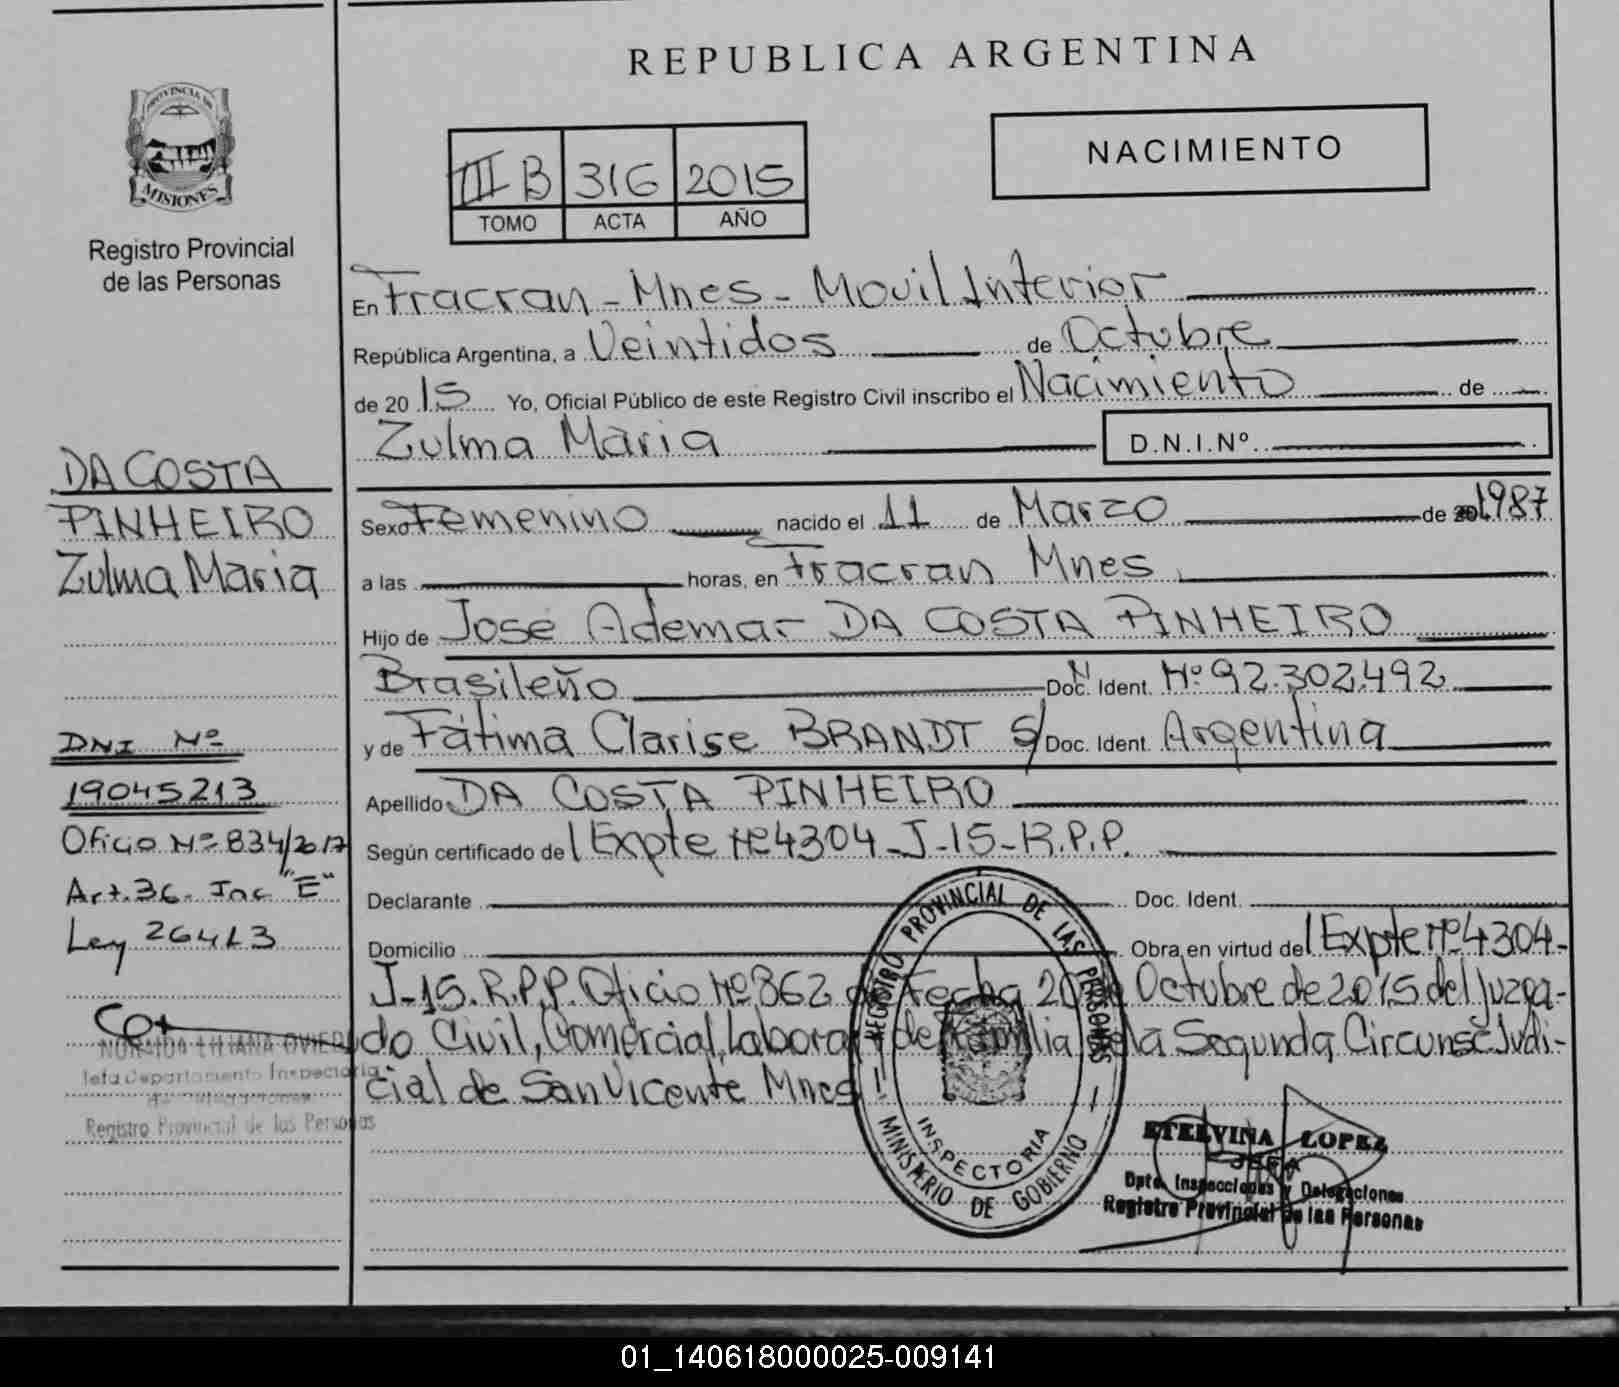 REPUBLICA ARGENTINA
PROVINCIA DE
MISIONES
Registro Provincial
de las Personas
III B 316 2015
TOMO ACTA AÑO
NACIMIENTO
En Fracran - Mnes - Movil Interior
República Argentina, a Veintidos de Octubre
de 20 15 Yo, Oficial Público de este Registro Civil inscribo el Nacimiento de
Zulma Maria D.N.I.Nº
DA COSTA
PINHEIRO
Zulma Maria
Sexo Femenino nacido el 11 de Marzo de 1987
a las horas, en Fracran Mnes
Hijo de José Ademar DA COSTA PINHEIRO
Brasileño Doc. Ident. Nº 92.302.492
y de Fátima Clarise BRANDT S/ Doc. Ident. Argentina
Apellido DA COSTA PINHEIRO
Según certificado del Expte Nº 4304-J-15-R.P.P.
Declarante Doc. Ident.
Domicilio Obra en virtud del Expte Nº 4304-
J-15.R.P.P. Oficio Nº 862 de Fecha 20 de Octubre de 2015 del Juzga-
do Civil, Comercial, Laboral y de Familia de la Segunda Circunsc Judi-
cial de San Vicente Mnes
DNI Nº
19045213
Oficio Nº 834/2017
Art. 36. Inc "E"
Ley 26413
Jefa Departamento Inspectoria
Registro Provincial de las Personas
REGISTRO PROVINCIAL DE LAS PERSONAS
INSPECTORIA
MINISTERIO DE GOBIERNO
ETELVINA LOPEZ
JEFA
Dpto. Inspecciones y Delegaciones
Registro Provincial de las Personas
01_140618000025-009141